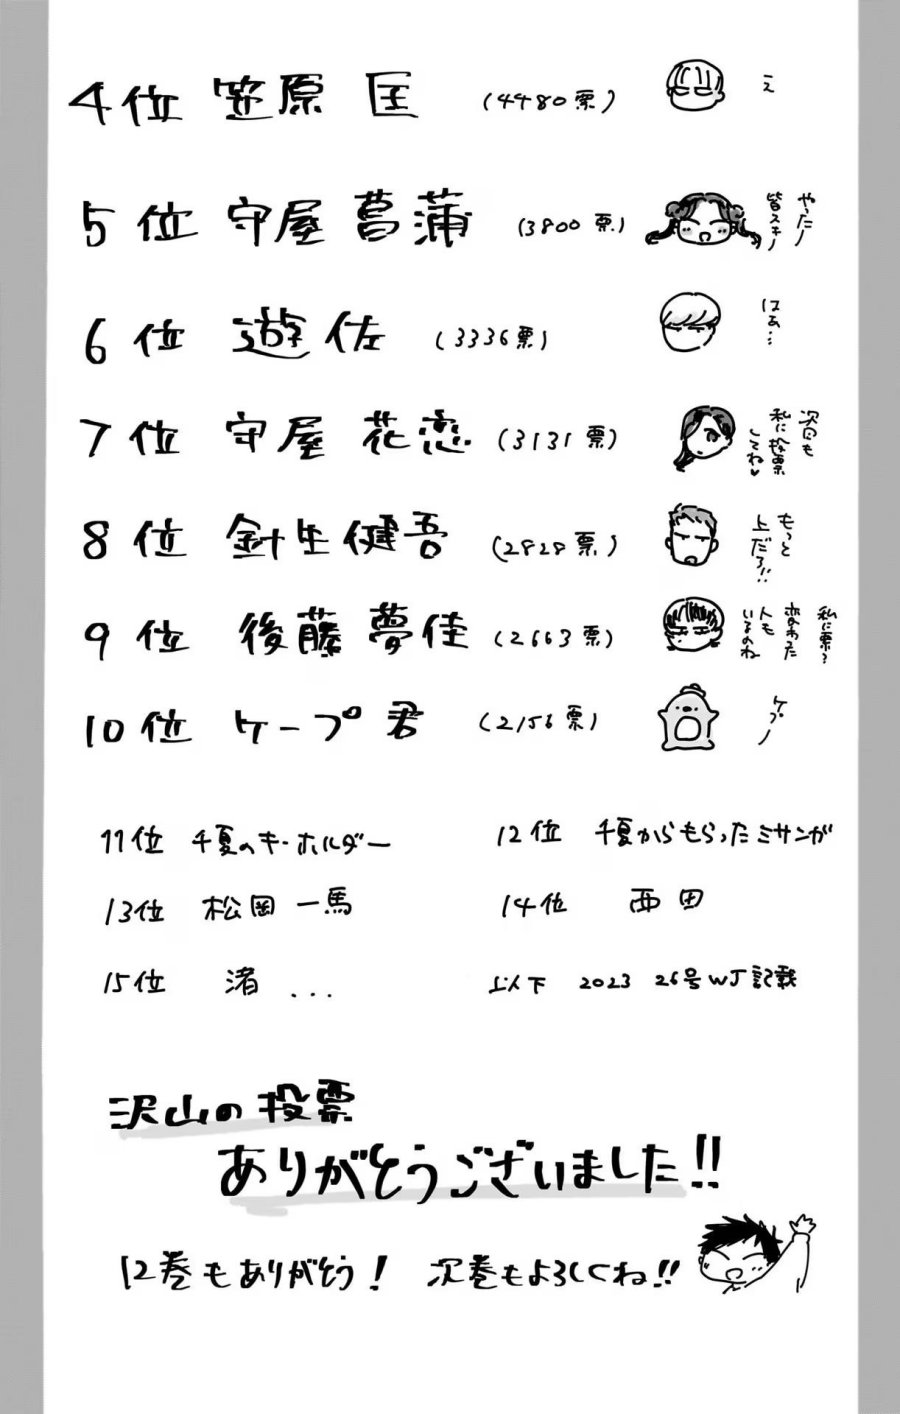 4位 笠原 匡 (4480票)
え
5位 守屋 菖蒲 (3800票)
やったー
皆スキー
6位 遊佐 (3336票)
はぁ…
7位 守屋 花恋 (3131票)
次回も
私に投票
してね♥
8位 針生健吾 (2828票)
もっと
上だろ!!
9位 後藤 夢佳 (2663票)
私に票?
変わった
人も
いるのね
10位 ケープ君 (2156票)
ケプー
11位 千夏のキーホルダー
12位 千夏からもらったミサンガ
13位 松岡 一馬
14位 西田
15位 渚 ...
以下 2023 26号WJ記載
沢山の投票
ありがとうございました!!
12巻もありがとう! 次巻もよろしくね!!